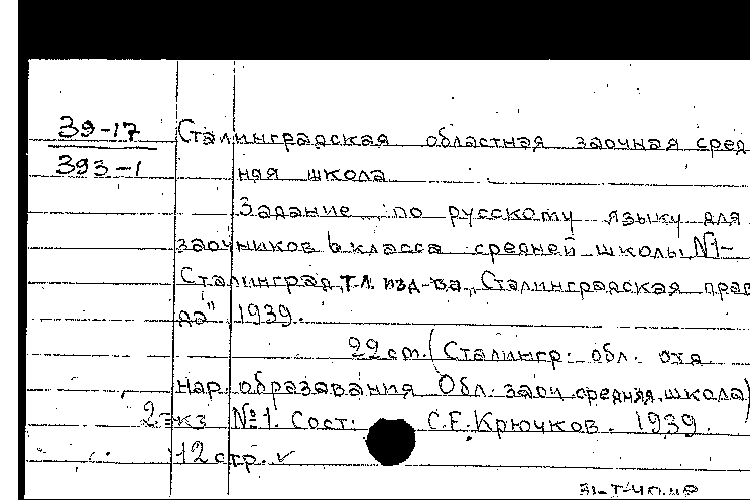 39-17 Сталинградская областная заочная сред
393-1 ная школа
Задание по русскому языку для
заочников 6 класса средней школы N1-
Сталинград, тл. изд-ва „Сталинградская прав
да" 1939.
22 cm. (Сталингр. обл. отд
нар. образования Обл. заоч. средняя школа)
2 экз №1. Сост: С.Е. Крючков. 1939.
12 стр. ✓